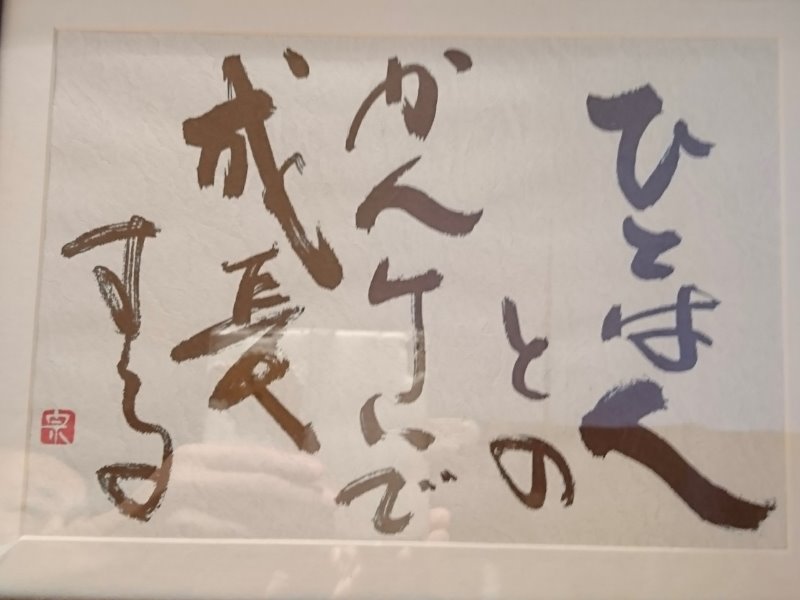 ひとは人
との
かんけいで
成長
する
泉